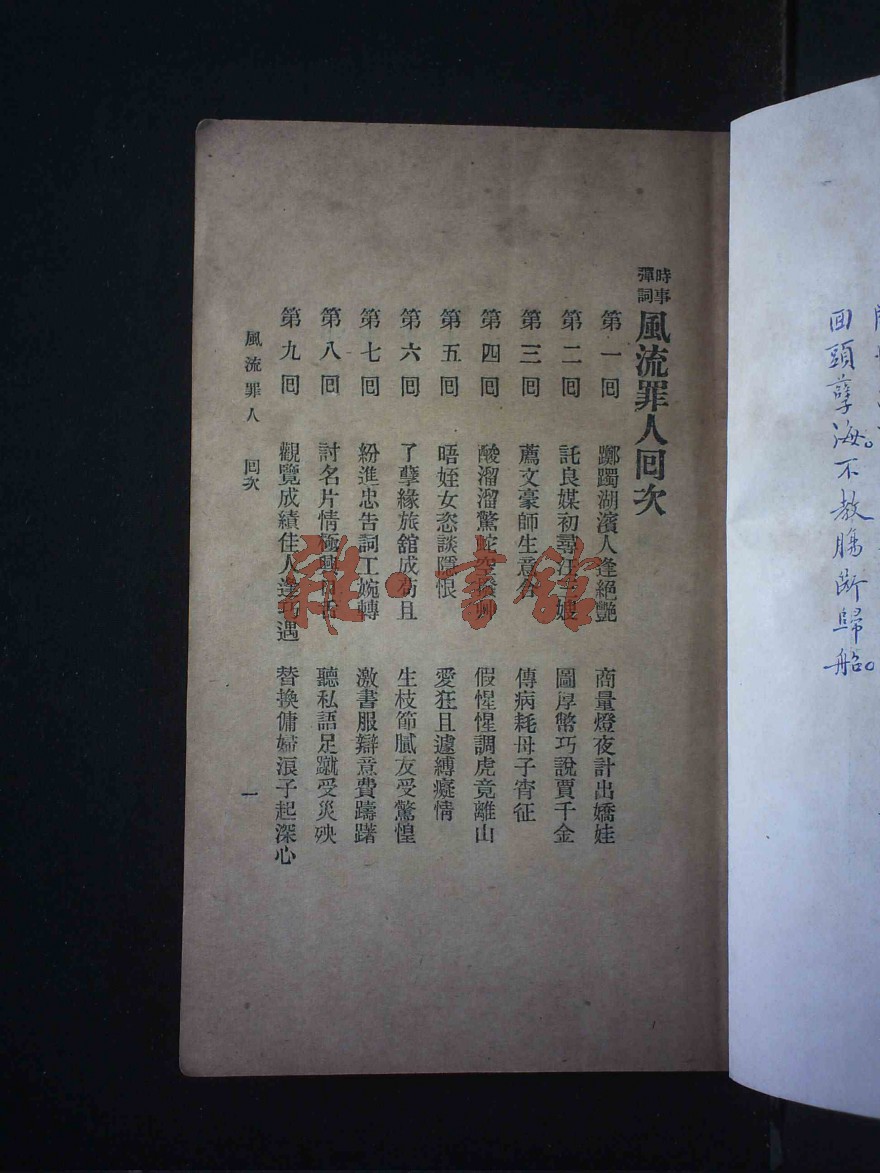 時事彈詞 風流罪人回次
第一回 躑躅湖濱人逢絕艷 商量燈夜計出嬌娃
第二回 託良媒初尋汪三嫂 圖厚幣巧說賈千金
第三回 薦文豪師生意合 傳病耗母子宵征
第四回 酸溜溜驚蛇空撥艸 假惺惺調虎竟離山
第五回 晤姪女恣談隱恨 愛狂且遽縛癡情
第六回 了孽緣旅舘成苟且 生枝節膩友受驚惶
第七回 紛進忠告詞工婉轉 激書服辯意費躊躇
第八回 討名片情極興 聽私語足蹴受災殃
第九回 觀覽成績佳人逢巧遇 替換傭婦浪子起深心
風流罪人 回次 一
雜·書舘
回頭孽海。不教腸斷歸船。